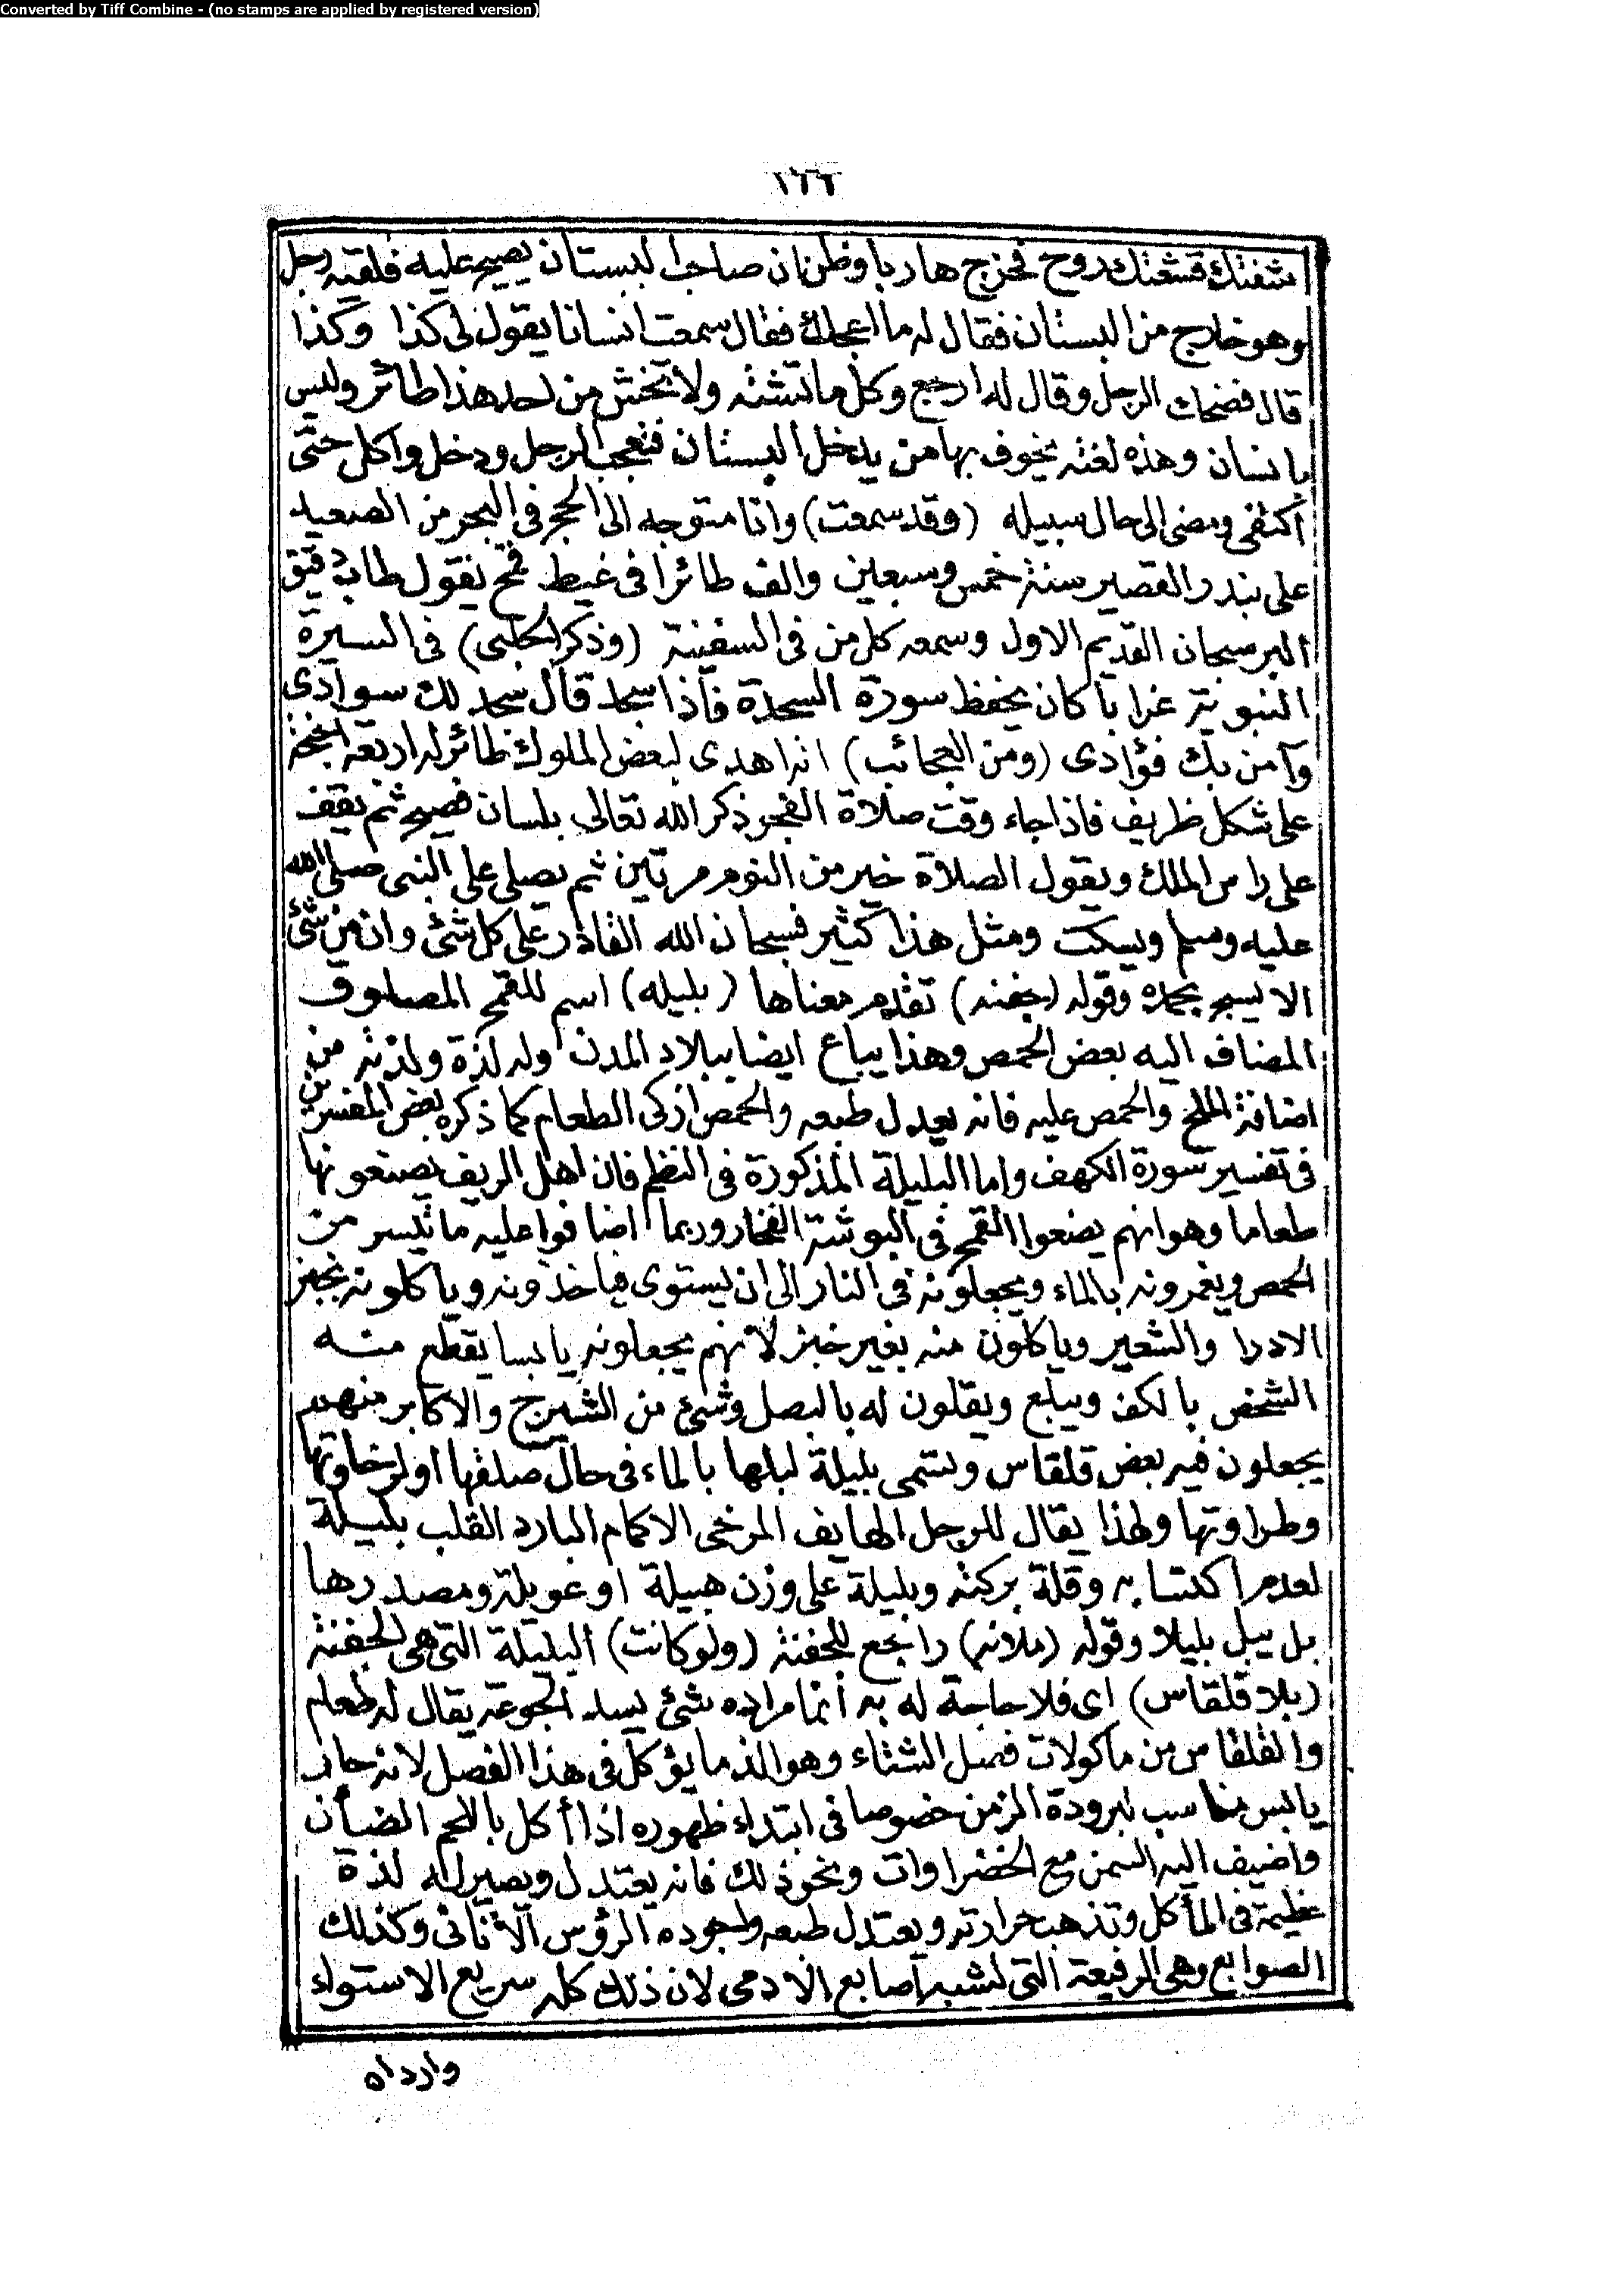 Converted by Tiff Combine - (no stamps are applied by registered version)
١٦٦
شفتك قشعتك روح فخرج هاربا وظن ان صاحب البستان يصيح عليه فلقيه رجل
وهو خارج من البستان فقال له ما اعجلك فقال سمعت انسانا يقول لى كذا وكذا
قال فضحك الرجل وقال له ارجع وكل ما تشته ولا تخش من احد هذا طائر وليس
بانسان وهذه لغته يخوف بها من يدخل البستان فتعجب الرجل ودخل واكل حتى
اكتفى ومضى الى حال سبيله (وقد سمعت) وانا متوجه الى الحج فى البحر من الصعيد
على بندر القصير سنة خمس وسبعين والف طائرا فى غيط قمح يقول طاب دقيق
البر سبحان القديم الاول وسمعه كل من فى السفينة (وذكر الحلبى) فى السيرة
النبوية غرابا كان يحفظ سورة السجدة فاذا سجد قال سجد لك سوادى
وآمن بك فؤادى (ومن العجائب) انه اهدى لبعض الملوك طائر له اربعة اجنحة
على شكل ظريف فاذا جاء وقت صلاة الفجر ذكر الله تعالى بلسان فصيح ثم يقف
على راس الملك ويقول الصلاة خير من النوم مرتين ثم يصلى على النبى صلى الله
عليه وسلم ويسكت ومثل هذا كثير فسبحان الله القادر على كل شئ وان من شئ
الا يسبح بحمده وقوله (جفنه) تقدم معناها (بليله) اسم للقمح المصلوق
المضاف اليه بعض الحمص وهذا يباع ايضا ببلاد المدن وله لذة ولذته من
اضافة الملح والحمص عليه فانه يعدل طبعه والحمص ازكى الطعام كما ذكره بعض المفسرين
فى تفسير سورة الكهف واما البليلة المذكورة فى النظم فان اهل الريف يصنعونها
طعاما وهو انهم يضعوا القمح فى البوشة الفخار وربما اضافوا عليه ما تيسر من
الحمص ويغمرونه بالماء ويجعلونه فى النار الى ان يستوى فياخذونه وياكلونه بخبز
الادرا والشعير وياكلون منه بغير خبز لانهم يجعلونه يابسا يقطع منه
الشخص بالكف ويبلع ويقلون له بالبصل وشئ من الشيرج والاكابر منهم
يجعلون فيه بعض قلقاس وتسمى بليلة لبلها بالماء فى حال صلقها او لرخاوتها
وطراوتها ولهذا يقال للرجل الهايف المرخى الاكمام البارد القلب بليلة
لعدم اكتسابه وقلة بركته وبليلة على وزن هبيلة او عويلة ومصدرها
بل يبل بليلا وقوله (ملانه) راجع للجفنة (ولو كانت) البليلة التى هى الجفنة
(بلا قلقاس) اى فلا حاجة له به انما مراده شئ يسد الجوعة يقال له طعام
والقلقاس من ماكولات فصل الشتاء وهو الذ ما يؤكل فى هذا الفصل لانه حار
يابس مناسب لبرودة الزمن خصوصا فى ابتداء ظهوره اذا أكل باللحم الضأن
واضيف اليه السمن مع الخضراوات ونحو ذلك فانه يعتدل ويصير له لذة
عظيمة فى المأكل وتذهب حرارته ويعتدل طبعه واجوده الرؤس الاناثى وكذلك
الصوابع وهى الرفيعة التى تشبه اصابع الادمى لان ذلك كله سريع الاستواء
وارداه